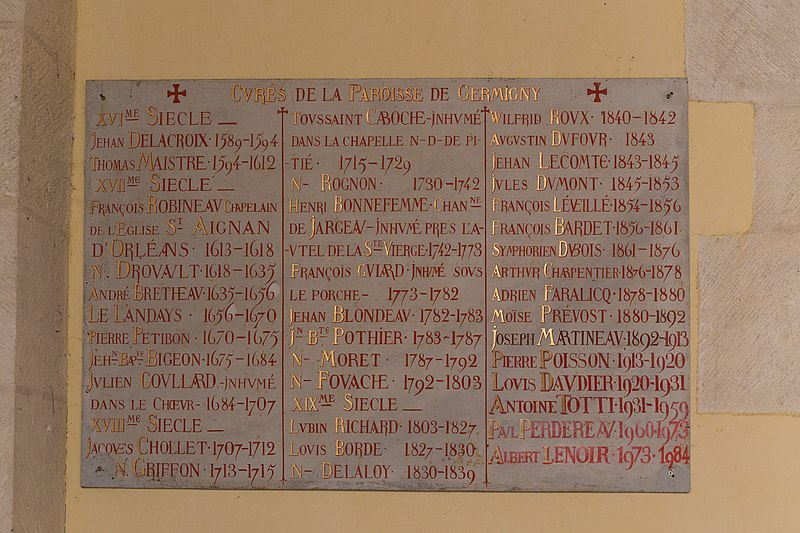 CVRÉS DE LA PAROISSE DE GERMIGNY
XVIME SIECLE
JEHAN DELACROIX · 1589-1594
THOMAS MAISTRE · 1594-1612
XVIIME SIECLE
FRANÇOIS ROBINEAV CHAPELAIN
DE L'EGLISE ST AIGNAN
D'ORLÉANS · 1613-1618
N. DROVALT · 1618-1635
ANDRÉ BRETHEAV · 1635-1656
LE LANDAYS · 1656-1670
PIERRE PETIBON · 1670-1675
JEHN BATE BIGEON · 1675-1684
JVLIEN COVLLARD - JNHVMÉ
DANS LE CHŒVR - 1684-1707
XVIIIME SIECLE
JACQVES CHOLLET · 1707-1712
N. GRIFFON · 1713-1715
TOVSSAINT CABOCHE - JNHVMÉ
DANS LA CHAPELLE N-D-DE PI-
TIÉ · 1715-1729
N- ROGNON · 1730-1742
HENRI BONNEFEMME · CHANNE
DE JARGEAV - JNHVMÉ PRES L'A-
VTEL DE LA STE VIERGE · 1742-1773
FRANÇOIS CVIARD · JNHVMÉ SOVS
LE PORCHE - 1773-1782
JEHAN BLONDEAV · 1782-1783
JN BTE POTHIER · 1783-1787
N- MORET · 1787-1792
N- FOVACHE · 1792-1803
XIXME SIECLE
LVBIN RICHARD · 1803-1827
LOVIS BORDE · 1827-1830
N- DELALOY · 1830-1839
WILFRID ROVX · 1840-1842
AVGVSTIN DVFOVR · 1843
JEHAN LECOMTE · 1843-1845
JVLES DVMONT · 1845-1853
FRANÇOIS LÉVEILLÉ · 1854-1856
FRANÇOIS BARDET · 1856-1861
SYMPHORIEN DVBOIS · 1861-1876
ARTHVR CHARPENTIER · 1876-1878
ADRIEN FARALICQ · 1878-1880
MOÏSE PRÉVOST · 1880-1892
JOSEPH MARTINEAV · 1892-1913
PIERRE POISSON · 1913-1920
LOVIS DAVDIER · 1920-1931
ANTOINE TOTTI · 1931-1959
PAVL PERDEREAV · 1960-1973
ALBERT LENOIR · 1973 · 1984